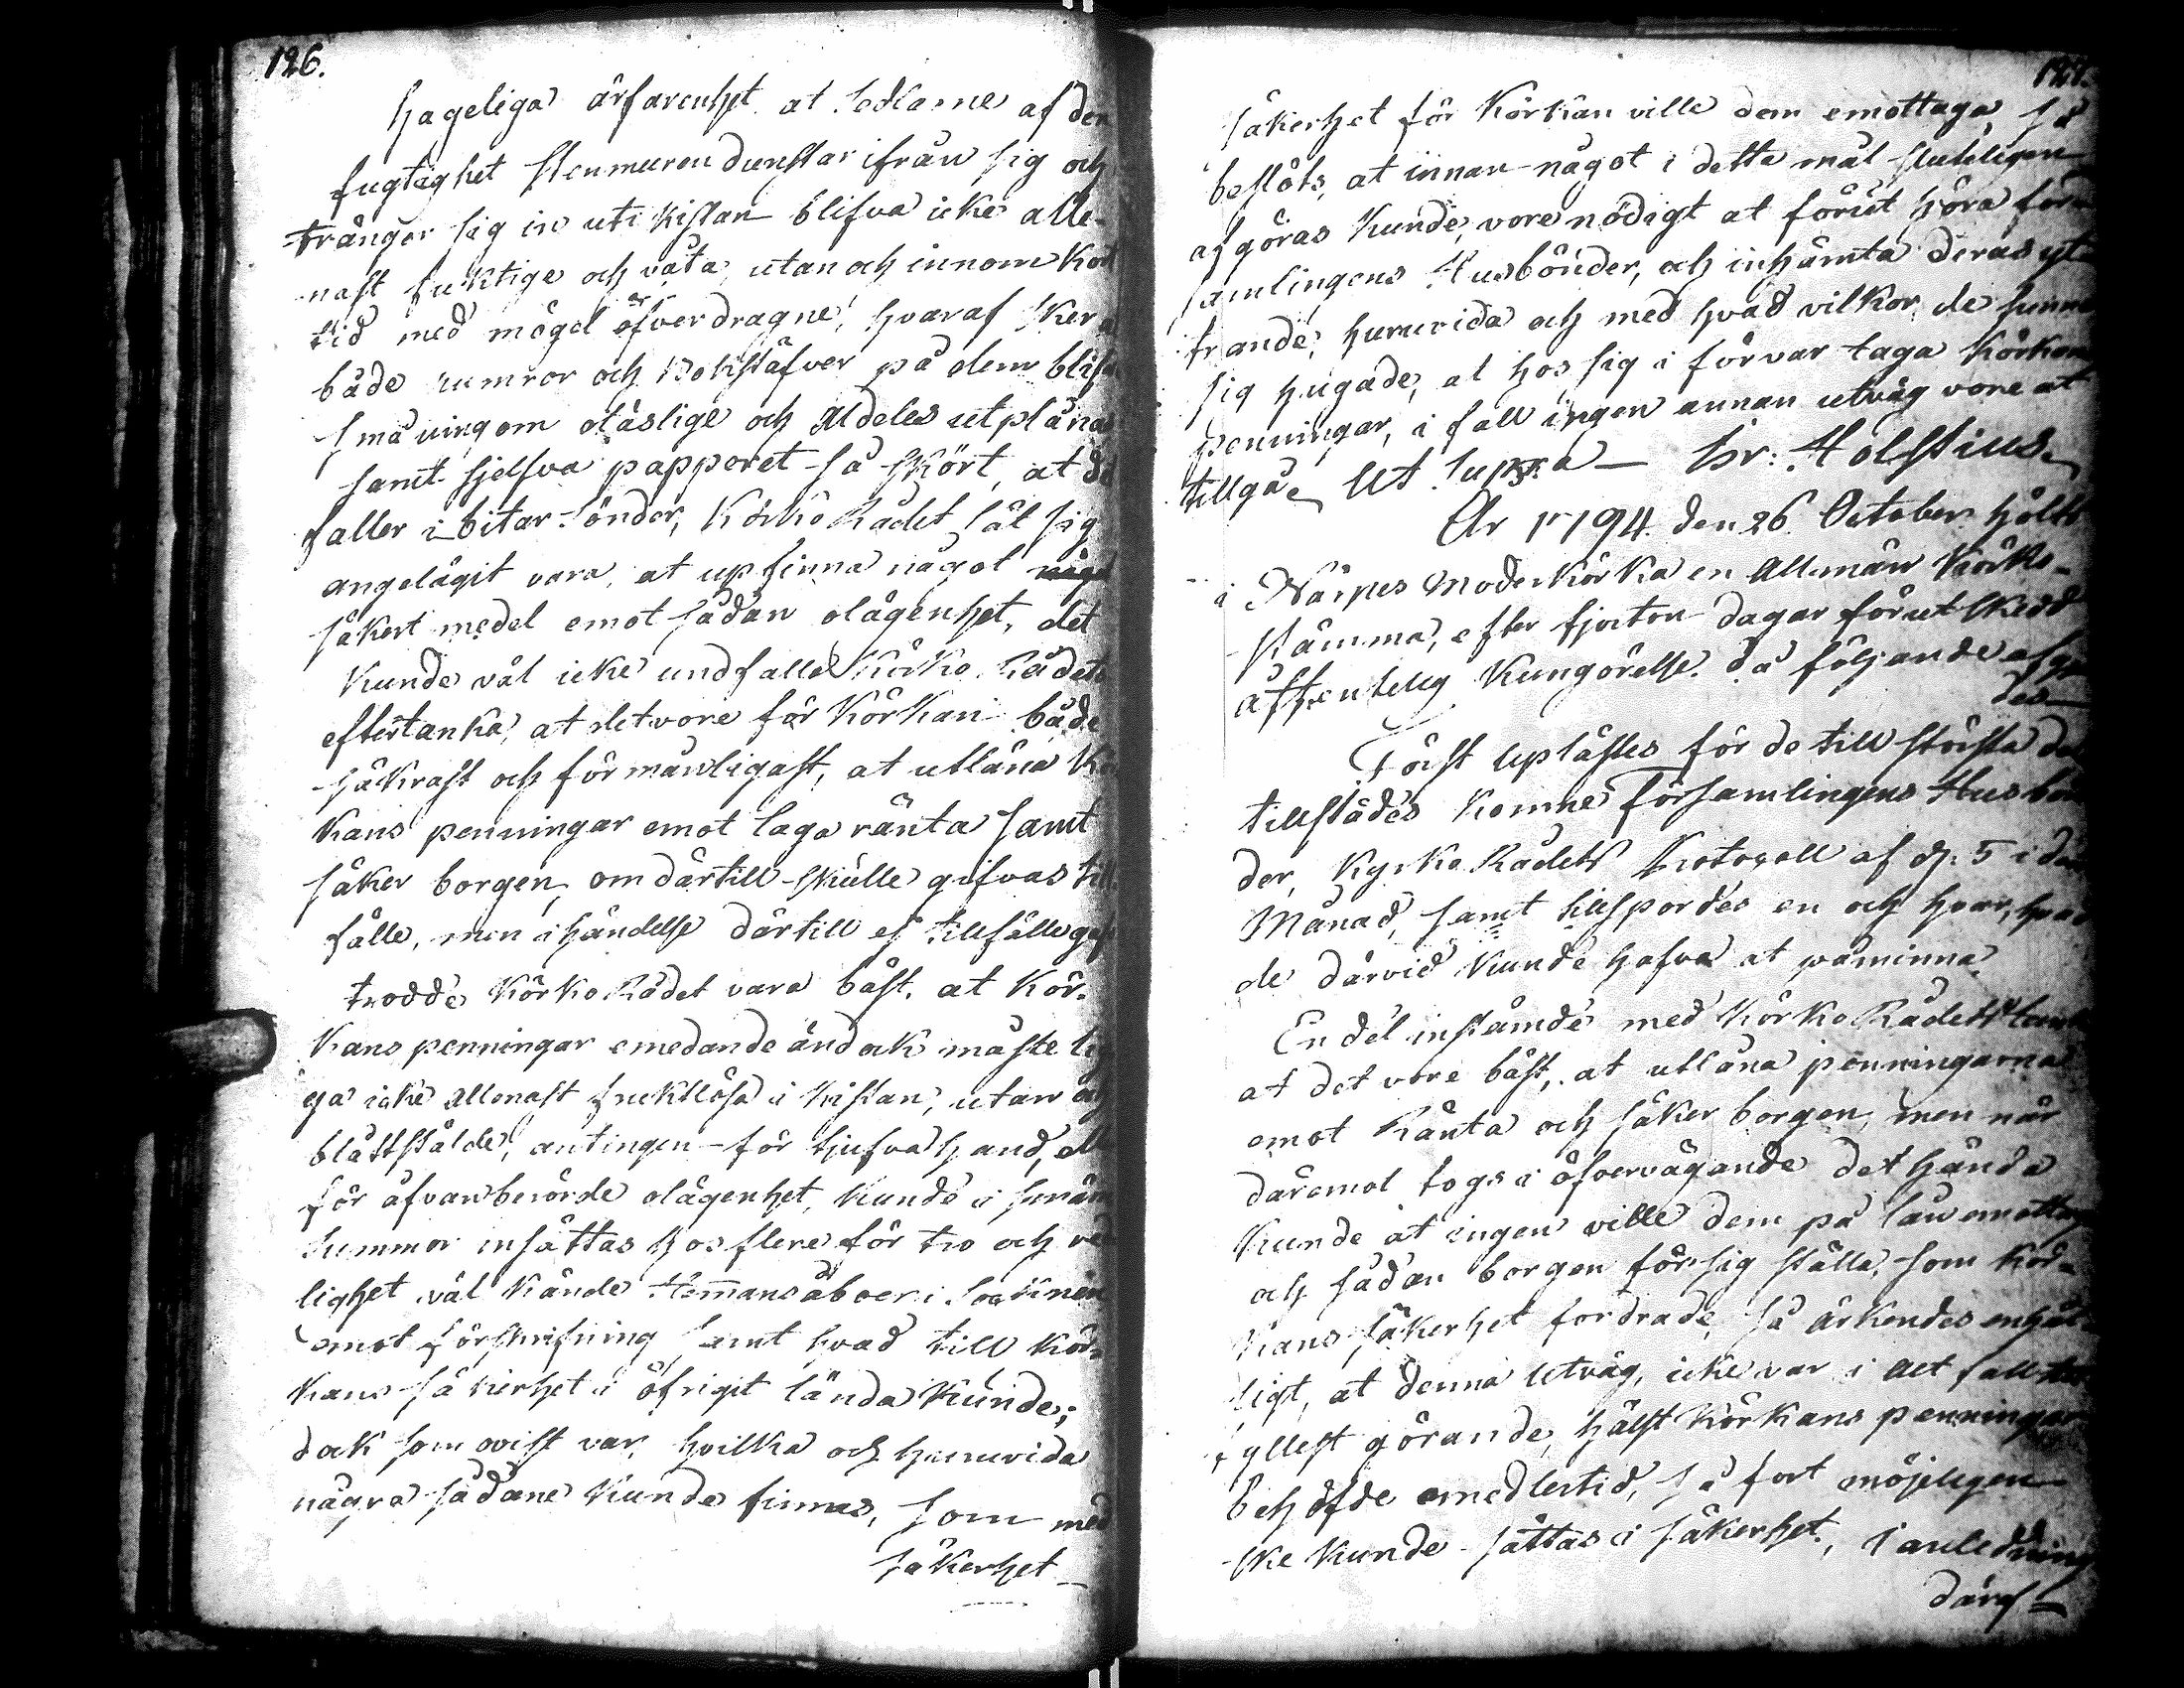 126.
hageliga ärfarenhet at Sedlarne af den
fugtighet Stenmuren dunstar ifrån sig och
tränger sig in uti Kistan blifva icke alle-
nast fuktige och våta, utan och innom Kort
tid med mögel öfverdragne, hvaraf sker at
både numror och Bokstäfver på dem blifva
småningom oläslige och Aldeles utplånas
samt sjelfva papperet så skört, at det
faller i bitar sönder, KörkoRådet lät sig
angelägit vara, at upfinna något
säkert medel emot sådan olägenhet, det
Kunde väl icke undfalla KörkoRådets
eftertanka, at det vore för Körkan både
säkrast och förmånligast, at utlåna Kör-
kans penningar emot laga ränta samt
säker borgen, om därtill skulle gifvas till-
fälle, men i händelse därtill ej tillfälle gafs
trodde KörkoRådet vara bäst, at Kör-
kans penningar emedan de ändock måste lig-
ga icke allenast fruktlösa i Kistan, utan och
blottstälde, antingen för tjufvahand, eller
för åfvanberörde olägenhet, Kunde i smärre
Summor insättas hos flere för tro och red-
lighet väl kände Hemmansåboer i Soknen
emot förskrifning samt hvad till Kör-
kans säkerhet i öfrigit lända Kunde;
dock som ovist var, hvilka och huruvida
några sådane Kunde finnas, som med
säkerhet
127.
säkerhet för Körkan ville dem emottaga, så
beslöts, at innan något i detta mål sluteligen
afgöras Kunde, vore nödigt at förut höra för-
samlingens Husbönder, och inhämta deras ytt-
rande, huruvida och med hvad vilkor de funno
sig hugade, at hos sig i förvar taga Körkans
penningar, i fall ingen annan utväg vore at
tillgå. Ut Supra — Hr: Holstius.
År 1794. den 26 October hölts
i Närpes Moderkörka en Allmän Körko-
stämma, efter fjorton dagar förut skedd
åffentelig Kungörelse, då följande afgior-
des
Först uplästes för de till största del
tillstädes Komne Församlingens Husbön-
der, KyrkoRådets Protocoll af d. 5 i denna
Månad, samt tillspordes en och hvar, hvad
de därvid Kunde hafva at påminna.
En del instämde med KörkoRådets tanka
at det vore bäst, at utlåna penningarna
emot Ränta och säker borgen, men när
däremot togs i öfvervägande det hända
Kunde at ingen ville dem på lån emottaga
och sådan borgen för sig ställa, som Kör-
kans säkerhet fordrade, så ärkendes enhäl-
ligt, at denna Utväg, icke var i Alt fall
fyllest görande, hälst Körkans penningar
behöfde emedlertid, så fort möjeligen
ske Kunde sättas i säkerhet, I anledning
däraf